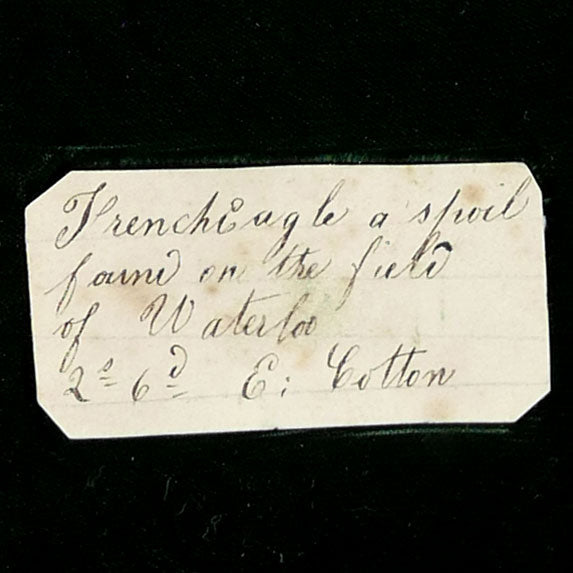 French Eagle a spoil
found on the field
of Waterloo
2s 6d E: Cotton